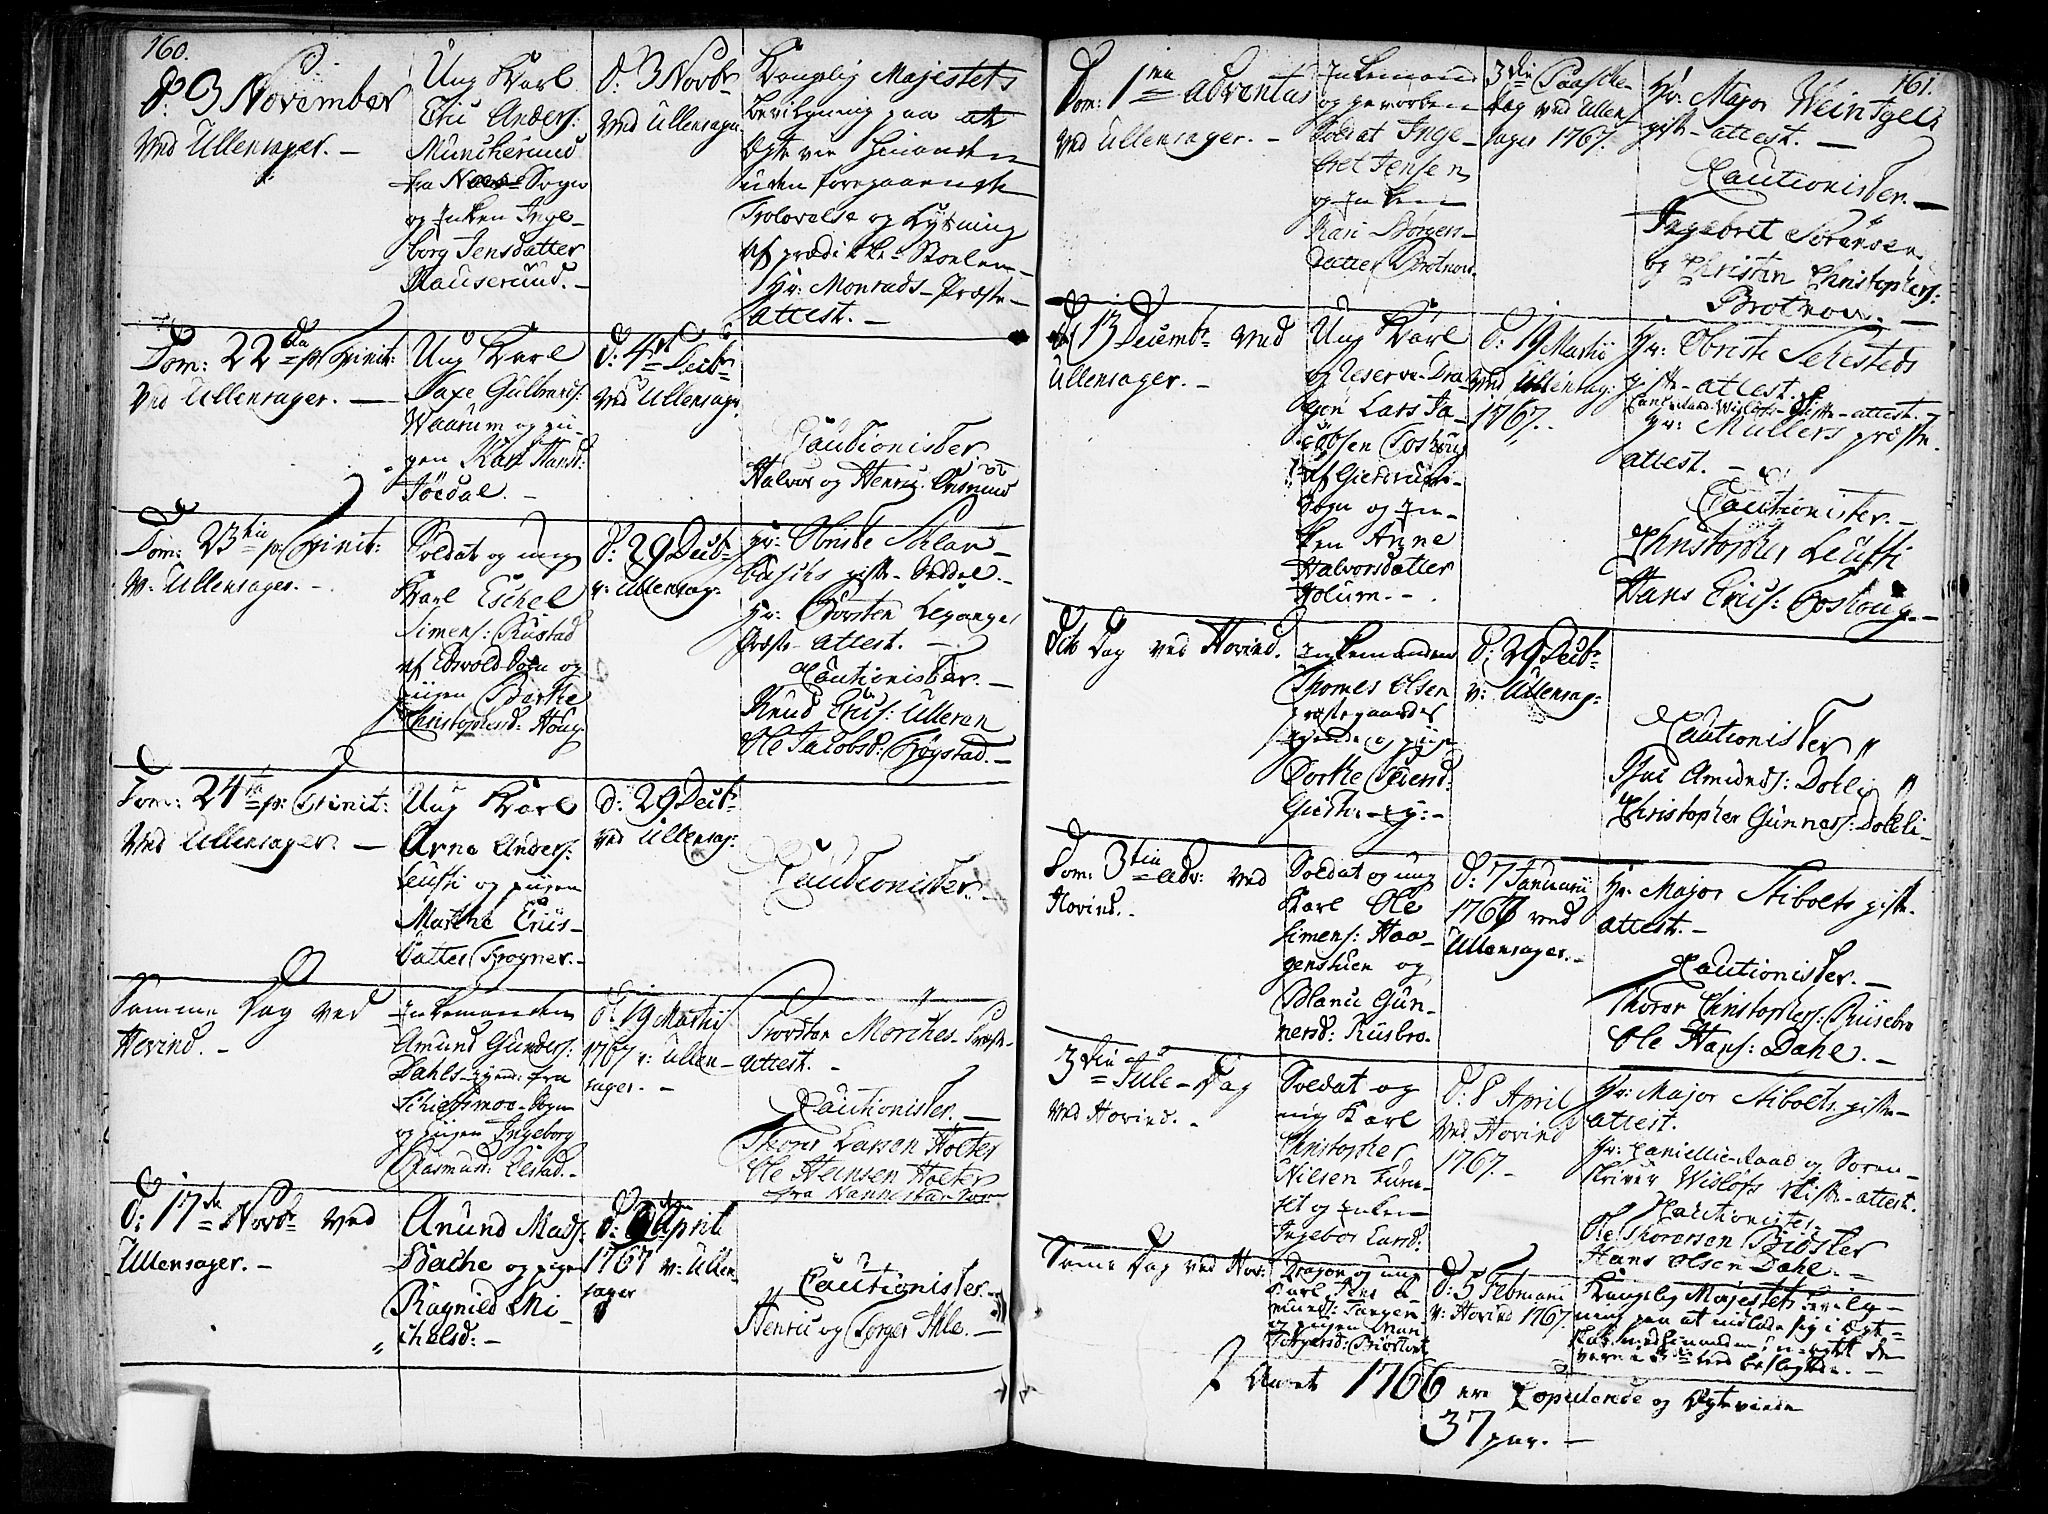 160.
d: 3 November
ved Ullensager. –
Ung Karl
Eric Anders:
Muncherud
fra Næse Sogn
og Enken Inge-
borg Jensdatter
Klauserud. –
d: 3 Novbr
ved Ullensager
Kongelig Majestets
bevilgning paa at
ægte vie hinanden
uden foregaaende
Trolovelse og Lysning
af prædikke-Stoelen –
Hr: Monrads Præste-
attest. –
Dom: 22da p: Trinit:
ved Ullensager. –
Ung Karl
Saxe Gulbrands:
Waarum og pi-
gen Kari Hansd:
Jördal. –
d: 4de Decbr
ved Ullensager
Cautionister
Halvor og Henric
Dom: 23tia p: Trinit:
v: Ullensager. –
Soldat og ung
Karl Eschel
Simens: Rustad
af Edsvold Sogn og
pigen Berthe
Christophersd: Houg
d: 29 Decbr
v: Ullensag:
Hr: Obriste
gifte-Seddel. –
Hr: Torsten
Præste-attest. –
Cautionister. –
Knud Erics: Ulleren
Ole Jacobsd: Røgstad. –
Dom: 24ta p: Trinit:
ved Ullensager –
Ung Karl
Arne Anders:
Leusti og pigen
Marthe Erics-
datter Krogner. –
d: 29 Decbr
ved Ullensag:
Cautionister. –
Samme Dag ved
Hovind. –
Enkemanden
Amund Gunders:
Dahls-eyend: fra
Sogn
og pigen Ingeborg
Rasmusd: –
d: 19 Martij
1767 v: Ullen-
sager. –
Provsten Morches Præste-
attest. –
Cautionister. –
Thores Larsen Holter
Ole Heinsen Holter
fra Nannestad Sogn
d: 17de Novbr ved
Ullensager. –
Amund Mads:
Bache og pigen
Ragnild Mi-
chelsd: –
d: April
1767 v: Ullen
sager
Cautionister. –
Henric og Torger Ihle. –
161.
Dom: 1ma adventus
ved Ullensager. –
Enkemand
og geworben
Soldat Inge-
bret Jensen
og Enken
Kari Børgers-
datter Brotnou.
3die Paaske-
dag ved Ullen-
sager 1767.
Hr: Major
gift-attest. –
Cautionister. –
Ingebret Sørensen
og Christen Christophers:
Brotnou. –
d: 13 Decembr ved
Ullensager. –
Ung Karl
og Reserve-Dra-
gon Lars Ja-
cobsen Toshoug
af Gierdrums-
Sogn og En-
ken Anne
Halvorsdatter
Holum. –
d: 19 Martij
ved Ullensag:
1767. –
Hr: Obriste Sehesteds
gift-attest.
Hr: Müllers præste-
attest. –
Cautionister. –
Christopher Leusti
Hans Erics: Toshoug. –
Dito Dag ved Hovind.
Enkemanden
Thomes Olsen
Præstegaardes
eyende og pige
Dorthe
d: 29 Decbr
v: Ullensag:
Cautionister
Amunds: Dobli
Christopher Gunners: Dobli –
Dom: 3tia adv: ved
Hovind. –
Soldat og ung
Karl Ole
Simens: Haa-
genstuen og
Gun-
nersd: Rusbro.
d: 7 Januarij
1767 ved
Ullensager. –
Hr: Major Stibolts gifte-
attest. –
Cautionister. –
Thorer Christophers:
Ole Hans: Dahl. –
3die Jule-Dag
ved Hovind. –
Soldat og
ung Karl
Christopher
Nilsen
og Enken
Ingebor Larsd:
d: 8 April
ved Hovind
1767. –
Hr: Major Stibolts gifte-
attest.
Hr: Cancellie-Raad og Soren-
skriver Wisløfs Skifte-attest.
Cautionister
Ole Thorersen
Hans Olsen Dahl. –
Samme Dag ved Hov:
Dragon og ung
Karl Jens A-
munds:
og pigen
d: 5 Februarij
v: Hovind 1767.
Kongelig Majestets bevilg-
ning paa at indlade sig i Ægte-
skab med hinanden, u-agtet de
vare i led beslægtede. –
I Aaret 1766 ere Copulerede og Ægteviede
37 par. –